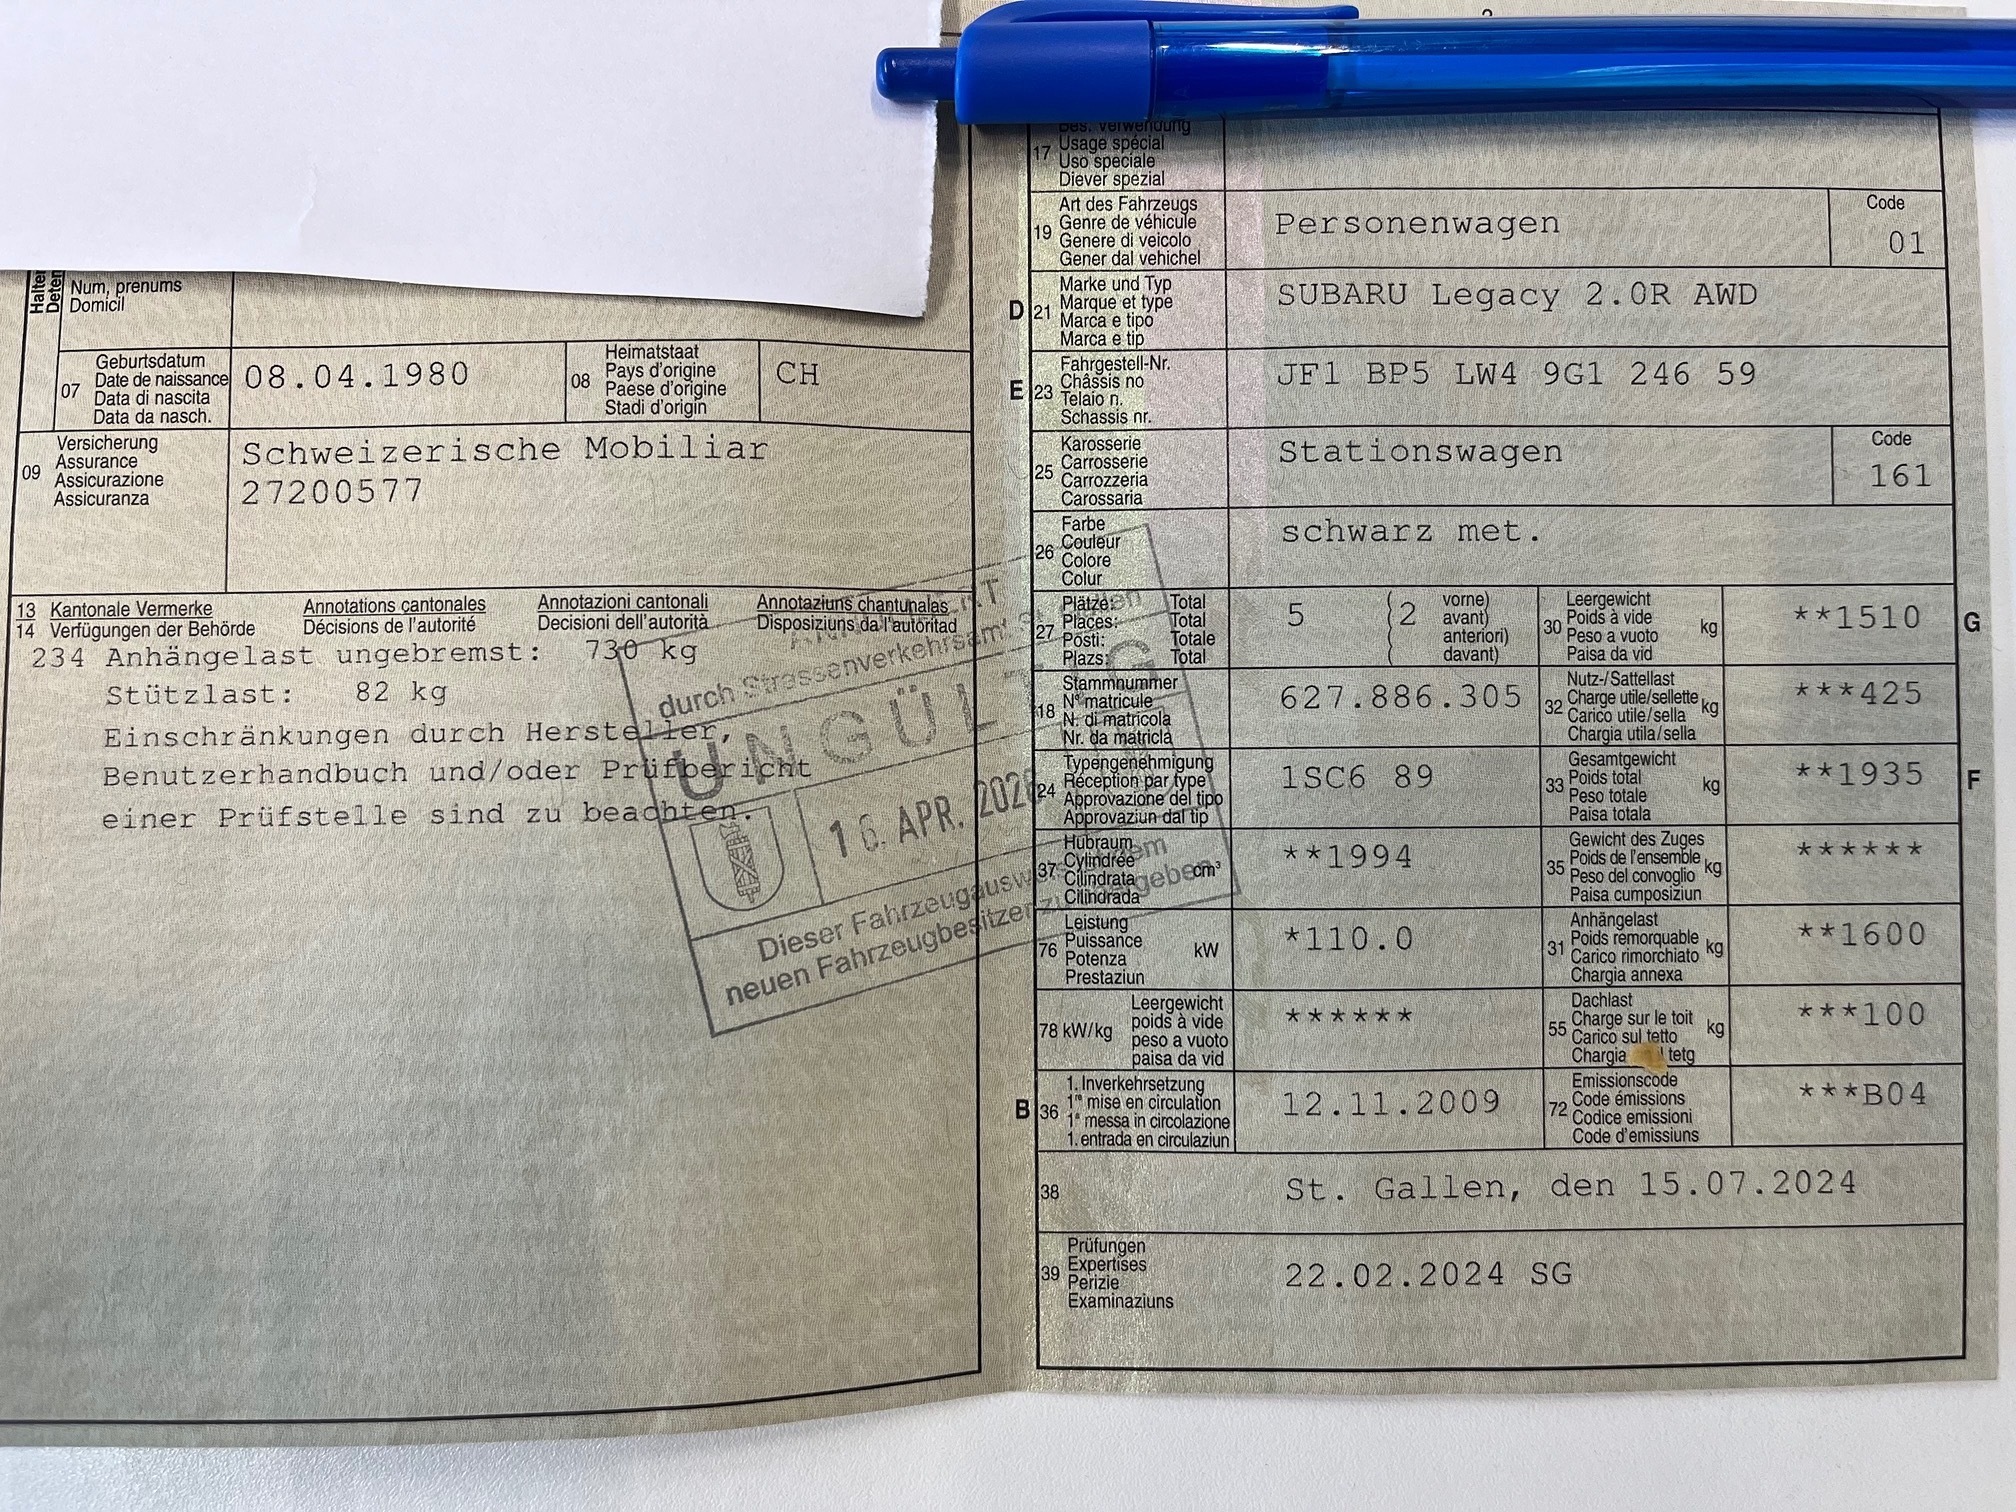 Halter
Deten
Num, prenums
Domicil
07
Geburtsdatum
Date de naissance
Data di nascita
Data da nasch.
08.04.1980
08
Heimatstaat
Pays d'origine
Paese d'origine
Stadi d'origin
CH
09
Versicherung
Assurance
Assicurazione
Assicuranza
Schweizerische Mobiliar
27200577
13 Kantonale Vermerke Annotations cantonales Annotazioni cantonali Annotaziuns chantunalas
14 Verfügungen der Behörde Décisions de l'autorité Decisioni dell'autorità Disposiziuns da l'autoritad
234 Anhängelast ungebremst: 730 kg
Stützlast: 82 kg
Einschränkungen durch Hersteller,
Benutzerhandbuch und/oder Prüfbericht
einer Prüfstelle sind zu beachten.
durch Strassenverkehrsamt St. Gallen
UNGÜLTIG
Dieser Fahrzeugausweis ist dem
neuen Fahrzeugbesitzer zu übergeben
17
Bes. Verwendung
Usage spécial
Uso speciale
Diever spezial
19
Art des Fahrzeugs
Genre de véhicule
Genere di veicolo
Gener dal vehichel
Personenwagen
Code
01
D 21
Marke und Typ
Marque et type
Marca e tipo
Marca e tip
SUBARU Legacy 2.0R AWD
E 23
Fahrgestell-Nr.
Châssis no
Telaio n.
Schassis nr.
JF1 BP5 LW4 9G1 246 59
25
Karosserie
Carrosserie
Carrozzeria
Carossaria
Stationswagen
Code
161
26
Farbe
Couleur
Colore
Colur
schwarz met.
27
Plätze: Total
Places: Total
Posti: Totale
Plazs: Total
5 (2 vorne)
avant)
anteriori)
davant)
30
Leergewicht
Poids à vide
Peso a vuoto
Paisa da vid
kg
**1510
G
18
Stammnummer
N° matricule
N. di matricola
Nr. da matricla
627.886.305
32
Nutz-/Sattellast
Charge utile/sellette
Carico utile/sella
Chargia utila/sella
kg
***425
24
Typengenehmigung
Réception par type
Approvazione del tipo
Approvaziun dal tip
1SC6 89
33
Gesamtgewicht
Poids total
Peso totale
Paisa totala
kg
**1935
F
37
Hubraum
Cylindrée
Cilindrata
Cilindrada
cm³
**1994
35
Gewicht des Zuges
Poids de l'ensemble
Peso del convoglio
Paisa cumposiziun
kg
******
76
Leistung
Puissance
Potenza
Prestaziun
kW
*110.0
31
Anhängelast
Poids remorquable
Carico rimorchiato
Chargia annexa
kg
**1600
78 kW/kg
Leergewicht
poids à vide
peso a vuoto
paisa da vid
******
55
Dachlast
Charge sur le toit
Carico sul tetto
Chargia tetg
kg
***100
B 36
1. Inverkehrsetzung
1re mise en circulation
1a messa in circolazione
1. entrada en circulaziun
12.11.2009
72
Emissionscode
Code émissions
Codice emissioni
Code d'emissiuns
***B04
38
St. Gallen, den 15.07.2024
39
Prüfungen
Expertises
Perizie
Examinaziuns
22.02.2024 SG